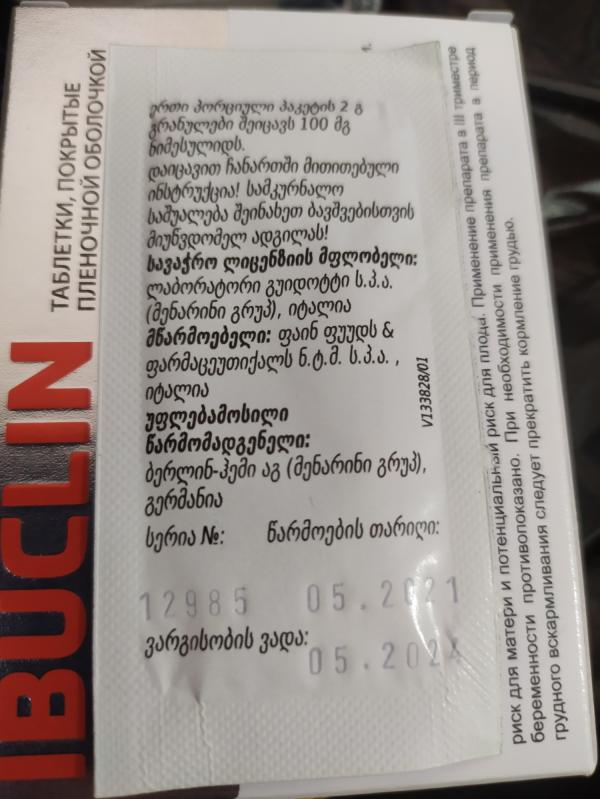 IBUCLIN
ТАБЛЕТКИ, ПОКРЫТЫЕ
ПЛЕНОЧНОЙ ОБОЛОЧКОЙ
ერთი პორციული პაკეტის 2 გ
გრანულები შეიცავს 100 მგ
ნიმესულიდს.
დაიცავით ჩანართში მითითებული
ინსტრუქცია! სამკურნალო
საშუალება შეინახეთ ბავშვებისთვის
მიუწვდომელ ადგილას!
სავაჭრო ლიცენზიის მფლობელი:
ლაბორატორი გუიდოტტი ს.პ.ა.
(მენარინი გრუპ), იტალია
მწარმოებელი: ფაინ ფუუდს &
ფარმაცეუთიქალს ნ.ტ.მ. ს.პ.ა. ,
იტალია
უფლებამოსილი
წარმომადგენელი:
ბერლინ-ჰემი აგ (მენარინი გრუპ),
გერმანია
სერია №: წარმოების თარიღი:
12985 05.2021
ვარგისობის ვადა:
05.202
V133828/01
риск для матери и потенциальный риск для плода. Применение препарата в III триместре
беременности противопоказано. При необходимости применения препарата в период
грудного вскармливания следует прекратить кормление грудью.